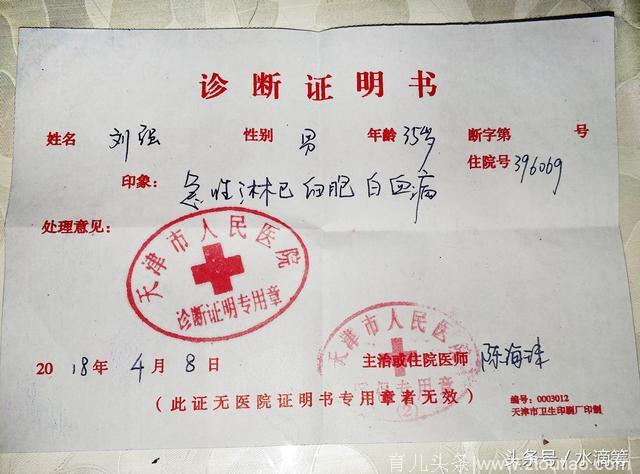 诊断证明书
姓名 刘强 性别 男 年龄 35岁 断字第 号
住院号 396069
印象: 急性淋巴细胞白血病
处理意见:
天津市人民医院
诊断证明专用章
天津市人民医院
专用章
(2)
2018年 4月 8日 主治或住院医师 陈海珠
(此证无医院证明书专用章者无效)
编号: 0003012
天津市卫生印刷厂印制
头条号 / 水滴筹
育儿头条